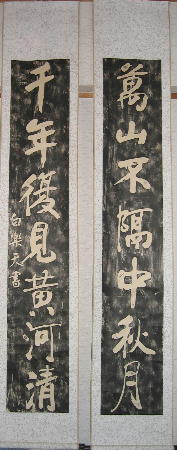 萬山不隔中秋月
千年復見黃河清
白樂天書